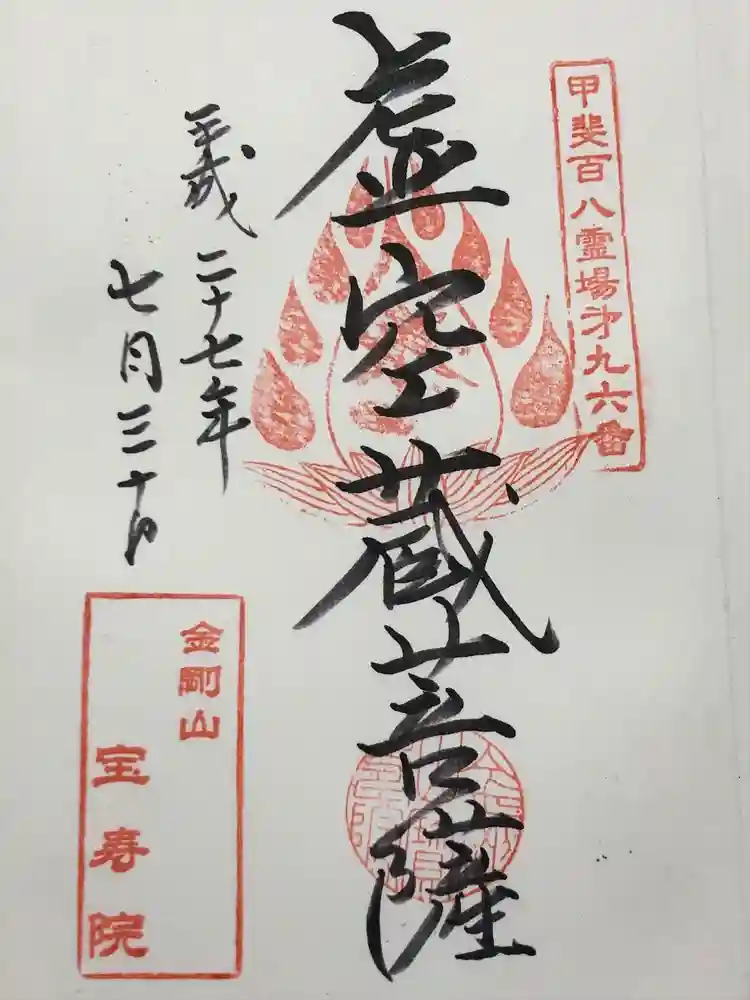 甲斐百八霊場第九六番
虚空蔵菩薩
平成二十七年
七月三十日
金剛山
宝寿院